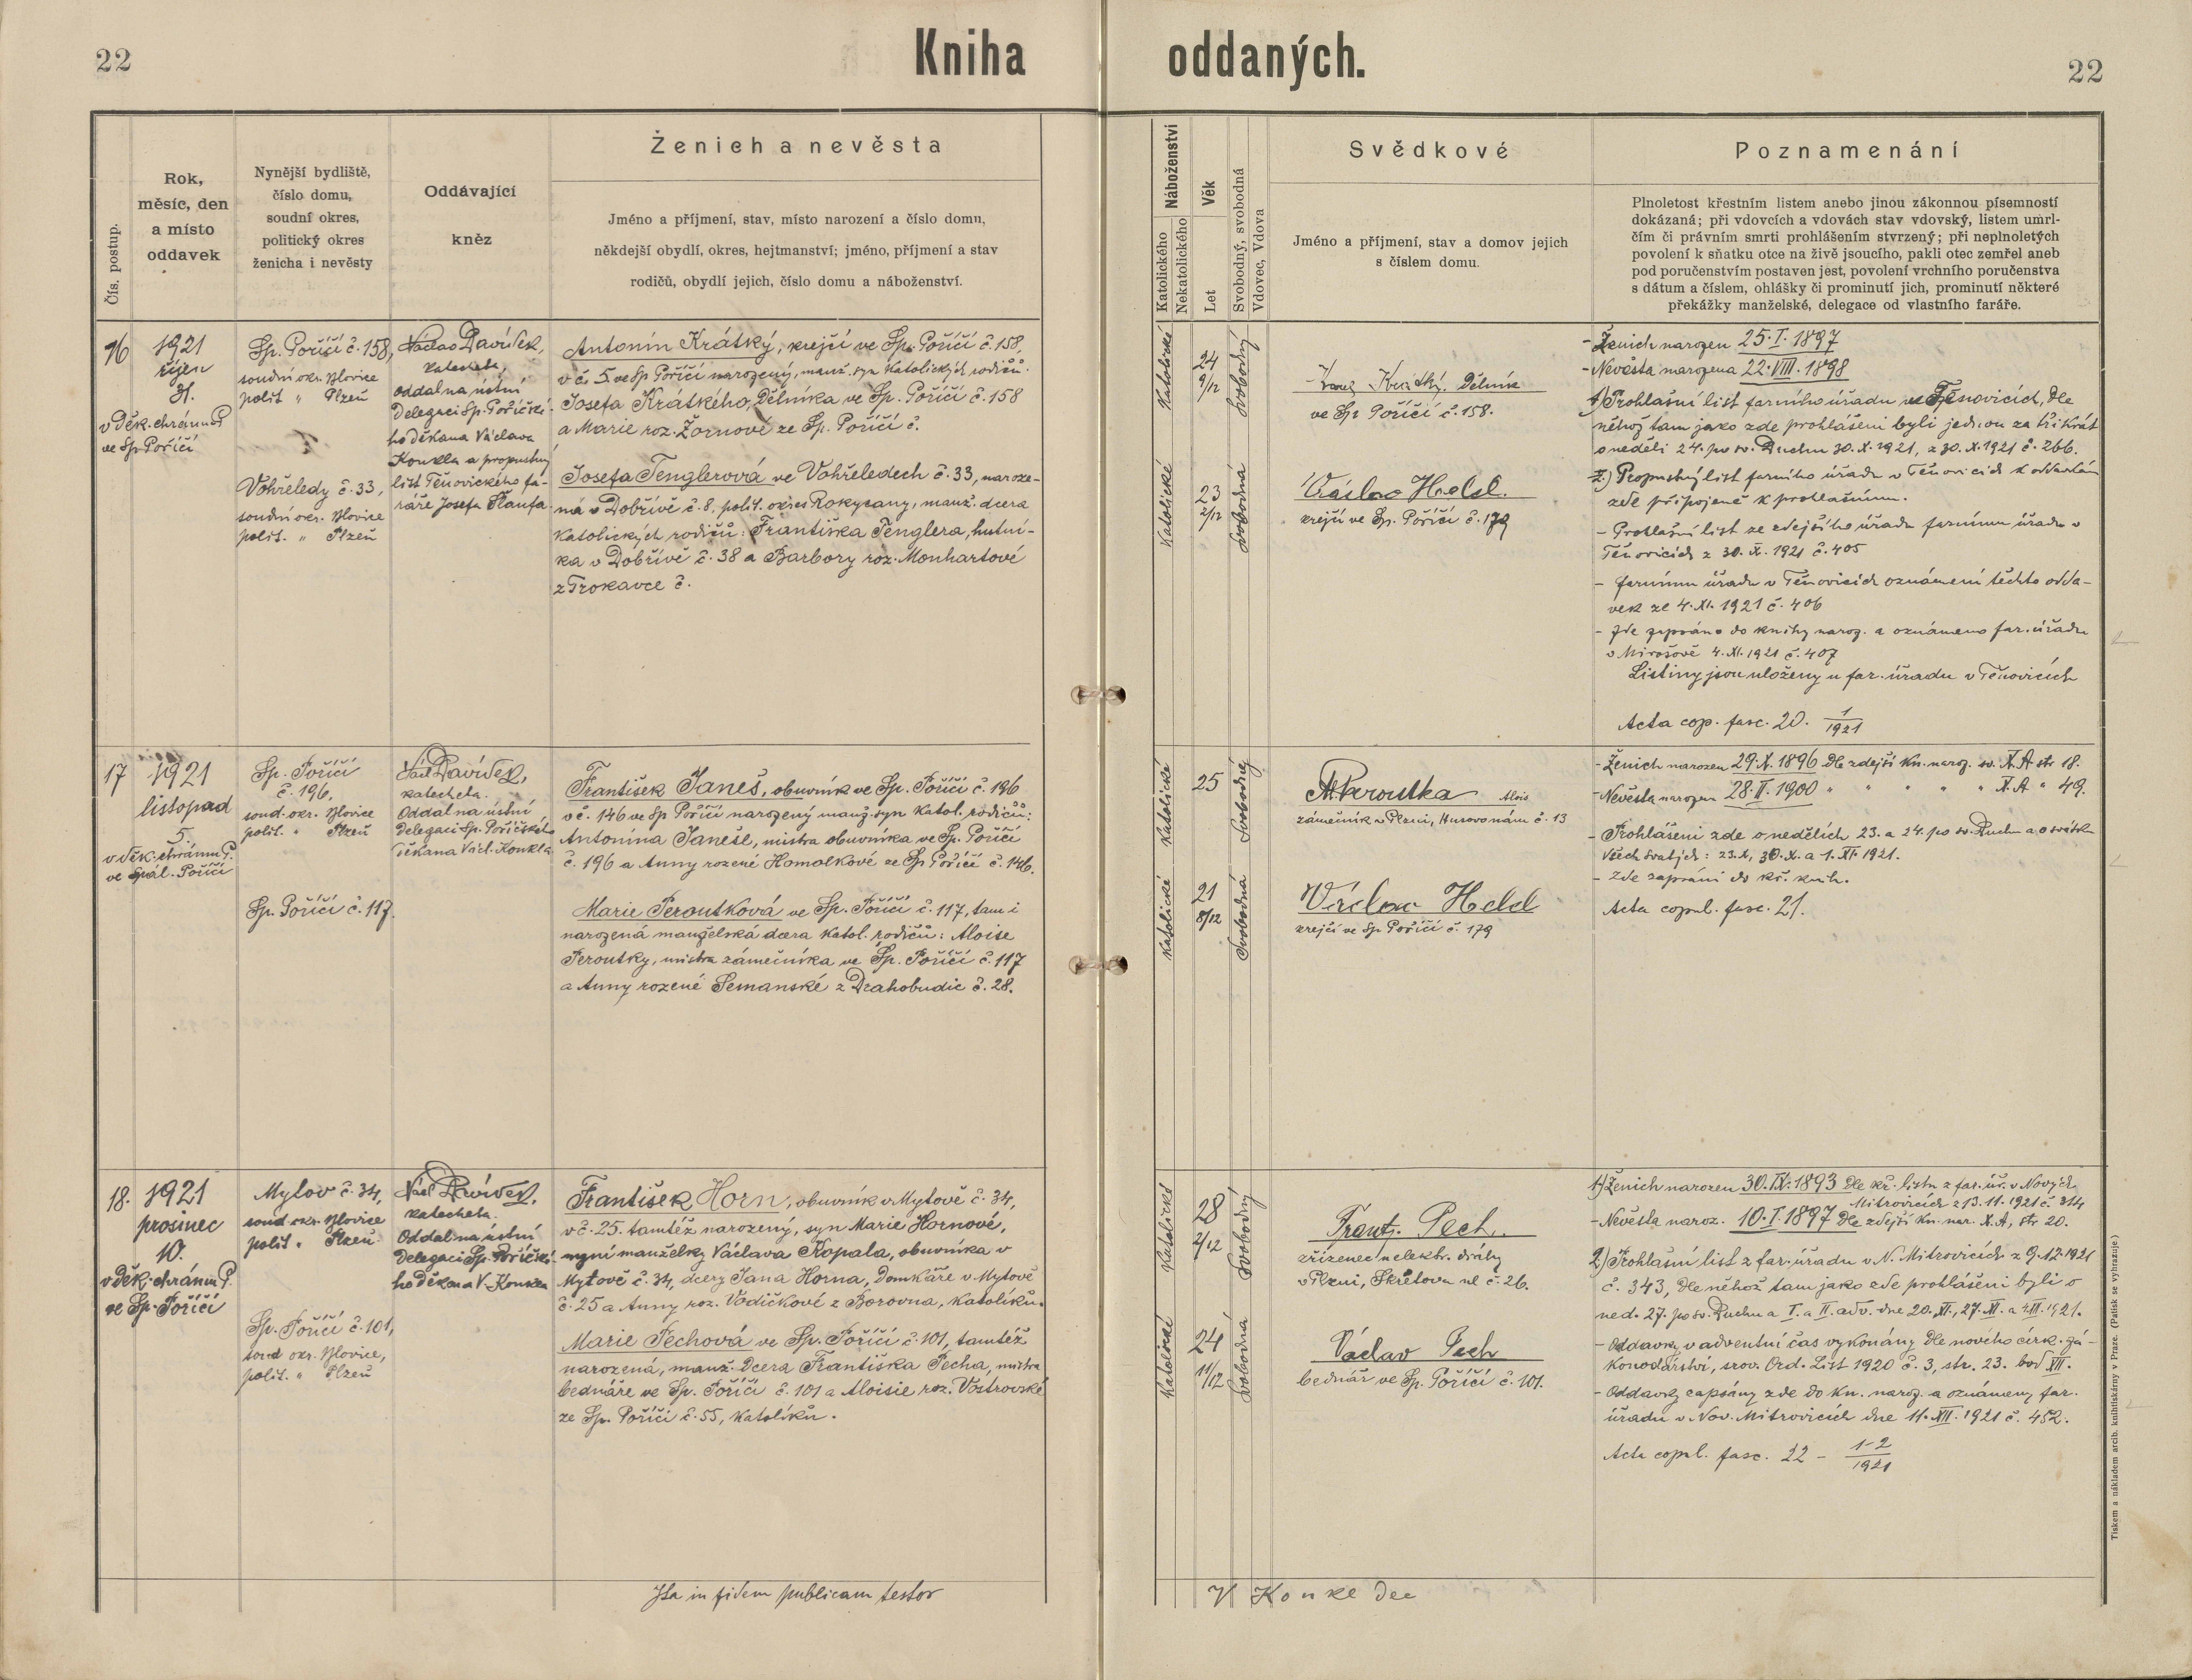 22
Kniha oddaných.
22
Čís. postup.
Rok,
měsíc, den
a místo
oddavek
Nynější bydliště,
číslo domu,
soudní okres,
politický okres
ženicha i nevěsty
Oddávající
kněz
Ženich a nevěsta
Jméno a příjmení, stav, místo narození a číslo domu,
někdejší obydlí, okres, hejtmanství; jméno, příjmení a stav
rodičů, obydlí jejich, číslo domu a náboženství.
Náboženství
Katolického
Nekatolického
Věk
Let
Svobodný, svobodná
Vdovec, Vdova
Svědkové
Jméno a příjmení, stav a domov jejich
s číslem domu.
Poznamenání
Plnoletost křestním listem anebo jinou zákonnou písemností
dokázaná; při vdovcích a vdovách stav vdovský, listem umrl-
čím či právním smrti prohlášením stvrzený; při neplnoletých
povolení k sňatku otce na živě jsoucího, pakli otec zemřel aneb
pod poručenstvím postaven jest, povolení vrchního poručenstva
s dátum a číslem, ohlášky či prominutí jich, prominutí některé
překážky manželské, delegace od vlastního faráře.
16
1921
říjen
31.
v děk. chrámu P.
ve Sp. Poříčí
Sp. Poříčí č. 158,
soudní okr. Blovice
polit " Plzeň
Vohřeledy č. 33,
soudní okr. Blovice
polit. " Plzeň
Václav Davídek,
katecheta,
oddal na ústní
delegaci Sp. Poříčské-
ho děkana Václava
Konkla a propustný
list Těňovického fa-
ráře Josefa
Antonín Krátký, krejčí ve Sp. Poříčí č. 158,
v č. 5 ve Sp Poříčí narozený, manž. syn katolických rodičů:
Josefa Krátkého, dělníka ve Sp. Poříčí č. 158
a Marie roz. Žornové ze Sp. Poříčí č.
Josefa Tenglerová ve Vohřeledech č. 33, naroze-
ná v Dobřívě č. 8, polit. okres Rokycany, manž. dcera
katolických rodičů: Františka Tenglera, hutní-
ka v Dobřívě č. 38 a Barbory roz. Monhartové
z Trokavce č.
Katolické
24
9/12
Svobodný
Krátký, dělník
ve Sp. Poříčí č. 158.
Katolické
23
2/12
Svobodná
Václav Held.
krejčí ve Sp. Poříčí č. 179
- Ženich narozen 25. I. 1897
- Nevěsta narozena 22. VIII. 1898
1) Prohlašní list farního úřadu v Těnovicích, dle
něhož tam jako zde prohlášeni byli jednou za třikrát
o neděli 24. po sv. Duchu 30. X. 1921, z 30. X. 1921 č. 266.
2.) Propustný list farního úřadu v Těňovicích k oddavkám
zde připojené k prohlašnímu.
- Prohlašní list ze zdejšího úřadu farnímu úřadu v
Těňovicích z 30. X. 1921 č. 405
- farnímu úřadu v Těňovicích oznámení těchto odda-
vek ze 4. XI. 1921 č. 406
- zde zapsáno do knihy naroz. a oznámeno far. úřadu
v Mirošově 4. XI. 1921 č. 407
Listiny jsou uloženy u far. úřadu v Těňovicích
Acta cop. fasc. 20. 1/1921
17
1921
listopad
5.
v děk. chrámu P.
ve Spál. Poříčí
Sp. Poříčí
č. 196,
soud. okr. Blovice
polit. " Plzeň
Sp. Poříčí č. 117.
Václ Davídek,
katecheta.
Oddal na ústní
delegaci Sp. Poříčského
děkana Václ. Konkla
František Janeš, obuvník ve Sp. Poříčí č. 196
v č. 146 ve Sp Poříčí narozený manž. syn katol. rodičů:
Antonína Janeše, mistra obuvníka ve Sp. Poříčí
č. 196 a Anny rozené Homolkové ze Sp Poříčí č. 146.
Marie Peroutková ve Sp. Poříčí č. 117, tam i
narozená manželská dcera katol. rodičů: Aloise
Peroutky, mistra zámečníka ve Sp. Poříčí č. 117
a Anny rozené Semanské z Drahobudic č. 28.
Katolické
25
Svobodný
Al. Peroutka Alois
zámečník v Plzni, Husovo nám č. 13
Katolické
21
8/12
Svobodná
Václav Held
krejčí ve Sp Poříčí č. 179
- Ženich narozen 29. X. 1896 dle zdejší kn. naroz. sv. X. A str 18.
- Nevěsta narozen 28. II. 1900 " " " " " X. A " 49.
- Prohlášeni zde o nedělích 23. a 24. po sv. Duchu a o svátku
všech svatých: 23. X, 30. X. a 1. XI. 1921.
- Zde zapsáni do kř. knih.
Acta copul. fasc. 21.
18.
1921
prosinec
10.
v děk. chrámu P.
ve Sp. Poříčí
Mytov č. 34,
soud okr. Blovice
polit. " Plzeň
Sp. Poříčí č. 101,
soud okr. Blovice,
polit. " Plzeň
Václ Davídek.
katecheta.
Oddal na ústní
delegaci Sp. Poříčské-
ho děkana V. Konkla
František Horn, obuvník v Mytově č. 34,
v č. 25. tamtéž narozený, syn Marie Hornové,
nyní manželky Václava Kopala, obuvníka v
Mytově č. 34, dcery Jana Horna, domkáře v Mytově
č. 25 a Anny roz. Vodičkové z Borovna, katolíků.
Marie Pechová ve Sp. Poříčí č. 101, tamtéž
narozená, manž. dcera Františka Pecha, mistra
bednáře ve Sp. Poříčí č. 101 a Aloisie roz. Vostrovské
ze Sp. Poříčí č. 55, katolíků.
Katolické
28
2/12
Svobodný
Frant. Pech.
zřízenec elektr. dráhy
v Plzni, Skrétova ul č. 26.
Katolické
24
11/12
Svobodná
Václav Pech
bednář ve Sp. Poříčí č. 101.
1) Ženich narozen 30. IX. 1893 dle kř. listu z far. úř. v Nových
Mitrovicích z 13. 11. 1921 č. 314
- Nevěsta naroz. 10. I. 1897 dle zdejší kn. nar. X. A, str 20.
2) Prohlašní list z far. úřadu v N. Mitrovicích z 9. 12. 1921
č. 343, dle něhož tam jako zde prohlášeni byli o
ned. 27. po sv. Duchu a I. a II. adv. dne 20. XI., 27. XI. a 4. XII. 1921.
- Oddavky v adventní čas vykonány dle nového círk. zá-
konodárství, srov. Ord. List 1920 č. 3, str. 23. bod XII.
- Oddavky zapsány zde do kn. naroz. a oznámeny far.
úřadu v Nov. Mitrovicích dne 11. XII. 1921 č. 452.
Acta copul. fasc. 22 - 1-2/1921
Ita in fidem publicam testor
V Konkl dec
Tiskem a nákladem arcib. knihtiskárny v Praze. (Patisk se vyhrazuje.)